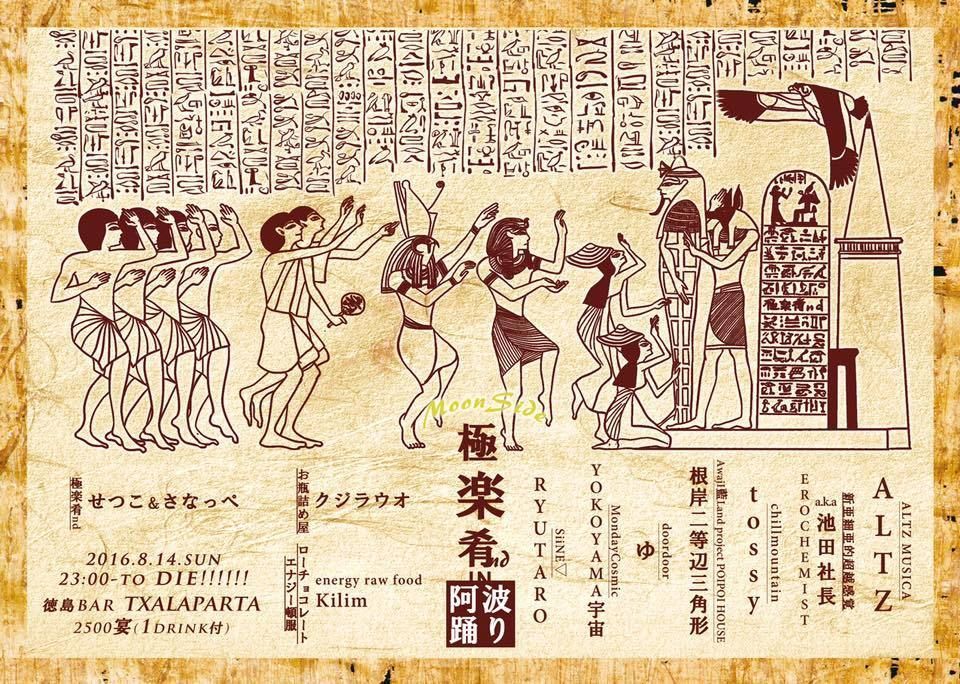 Moon Side
極楽肴nd
IN
阿波踊り
ALTZ MUSICA
ALTZ
新亜細亜的超越感覚
a.k.a 池田社長
EROCHEMIST
chillmountain
tossy
Awaji藍Land project POIPOI HOUSE
根岸二等辺三角形
doordoor
ゆ
MondayCosmic
YOKOYAMA宇宙
SiiNE▽
RYUTARO
極楽肴nd
せつこ&さなっぺ
お瓶詰め屋
クジラウオ
ローチョコレート
エナジー頓服
energy raw food
Kilim
2016.8.14.SUN
23:00-TO DIE!!!!!!
徳島BAR TXALAPARTA
2500宴(1DRINK付)